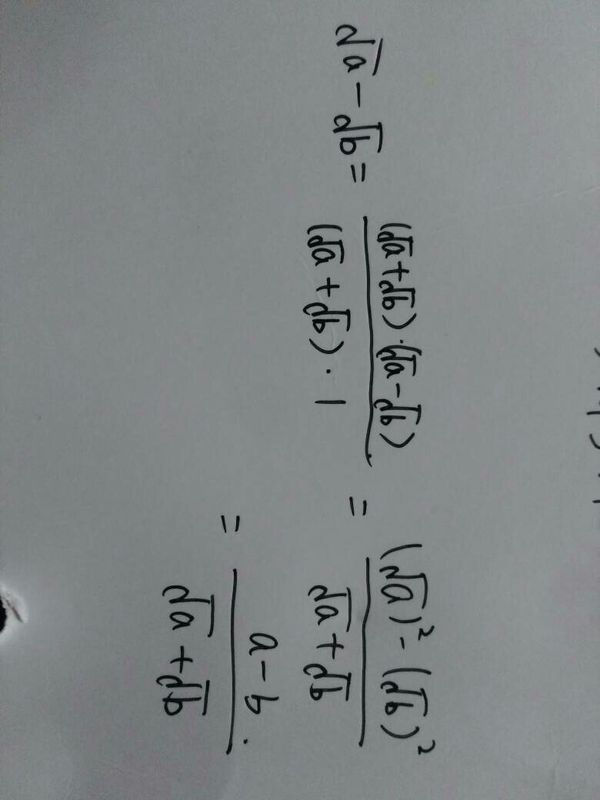 √a - √b = (√a+√b)·(√a-√b) / (√a+√b)·1 = (√a)² - (√b)² / √a+√b
= a-b / √a+√b.